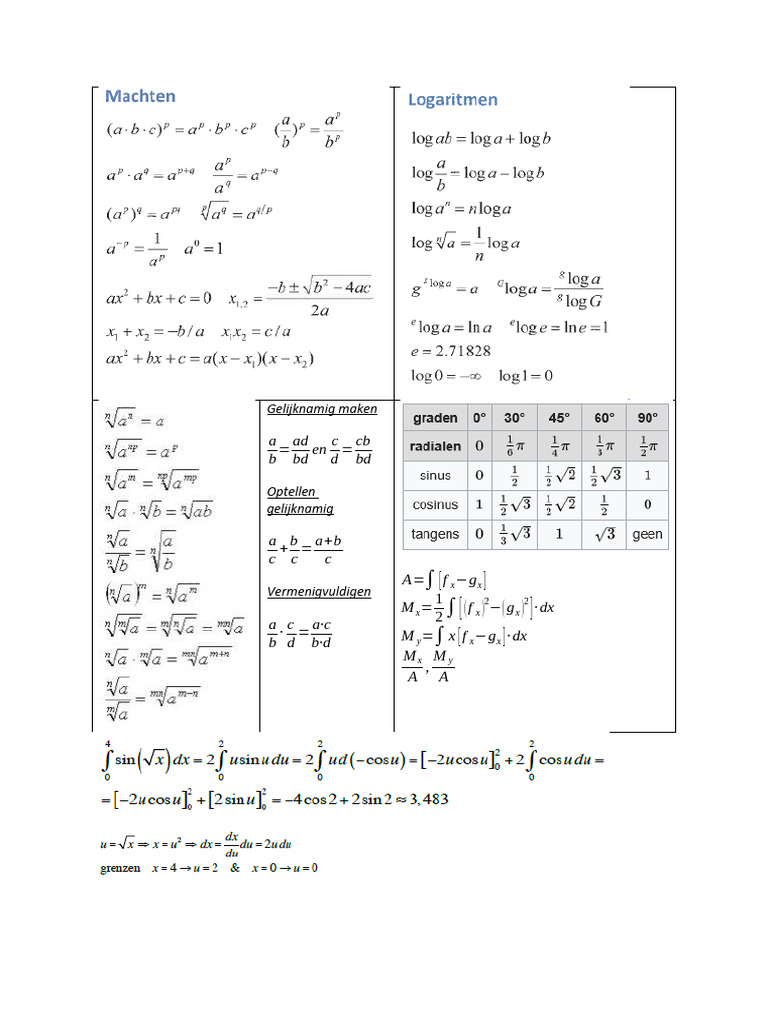 Machten
(a · b · c)^p = a^p · b^p · c^p (a/b)^p = a^p/b^p
a^p · a^q = a^(p+q) a^p/a^q = a^(p−q)
(a^p)^q = a^(pq) ᵖ√(a^q) = a^(q/p)
a^(−p) = 1/a^p a^0 = 1
ax² + bx + c = 0 x₁,₂ = (−b ± √(b² − 4ac))/2a
x₁ + x₂ = −b / a x₁x₂ = c / a
ax² + bx + c = a(x − x₁)(x − x₂)
Logaritmen
log ab = log a + log b
log a/b = log a − log b
log a^n = n log a
log ⁿ√a = 1/n log a
= a ᴳlog a = ᵍlog a / ᵍlog G
ᵉlog a = ln a ᵉlog e = ln e = 1
e = 2.71828
log 0 = −∞ log 1 = 0
ⁿ√(a^n) = a
ⁿ√(a^(np)) = a^p
ⁿ√(a^m) = ⁿᵖ√(a^(mp))
ⁿ√a · ⁿ√b = ⁿ√(ab)
ⁿ√a / ⁿ√b = ⁿ√(a/b)
(ⁿ√a)^m = ⁿ√(a^m)
ⁿ√(ᵐ√a) = ᵐ√(ⁿ√a) = ᵐⁿ√a
ⁿ√a · ᵐ√a = ᵐⁿ√(a^(m+n))
ⁿ√a / ᵐ√a = ᵐⁿ√(a^(m−n))
Gelijknamig maken
a/b = ad/bd en c/d = cb/bd
Optellen
gelijknamig
a/c + b/c = a+b/c
Vermenigvuldigen
a/b · c/d = a·c/b·d
graden 0° 30° 45° 60° 90°
radialen 0 1/6 π 1/4 π 1/3 π 1/2 π
sinus 0 1/2 1/2 √2 1/2 √3 1
cosinus 1 1/2 √3 1/2 √2 1/2 0
tangens 0 1/3 √3 1 √3 geen
A = ∫ [f_x − g_x]
M_x = 1/2 ∫ [(f_x)² − (g_x)²] · dx
M_y = ∫ x [f_x − g_x] · dx
M_x/A , M_y/A
∫₀⁴ sin(√x) dx = 2 ∫₀² u sin u du = 2 ∫₀² ud(−cos u) = [−2u cos u]₀² + 2 ∫₀² cos u du =
= [−2u cos u]₀² + [2 sin u]₀² = −4 cos 2 + 2 sin 2 ≈ 3,483
u = √x ⇒ x = u² ⇒ dx = dx/du du = 2u du
grenzen x = 4 → u = 2 & x = 0 → u = 0